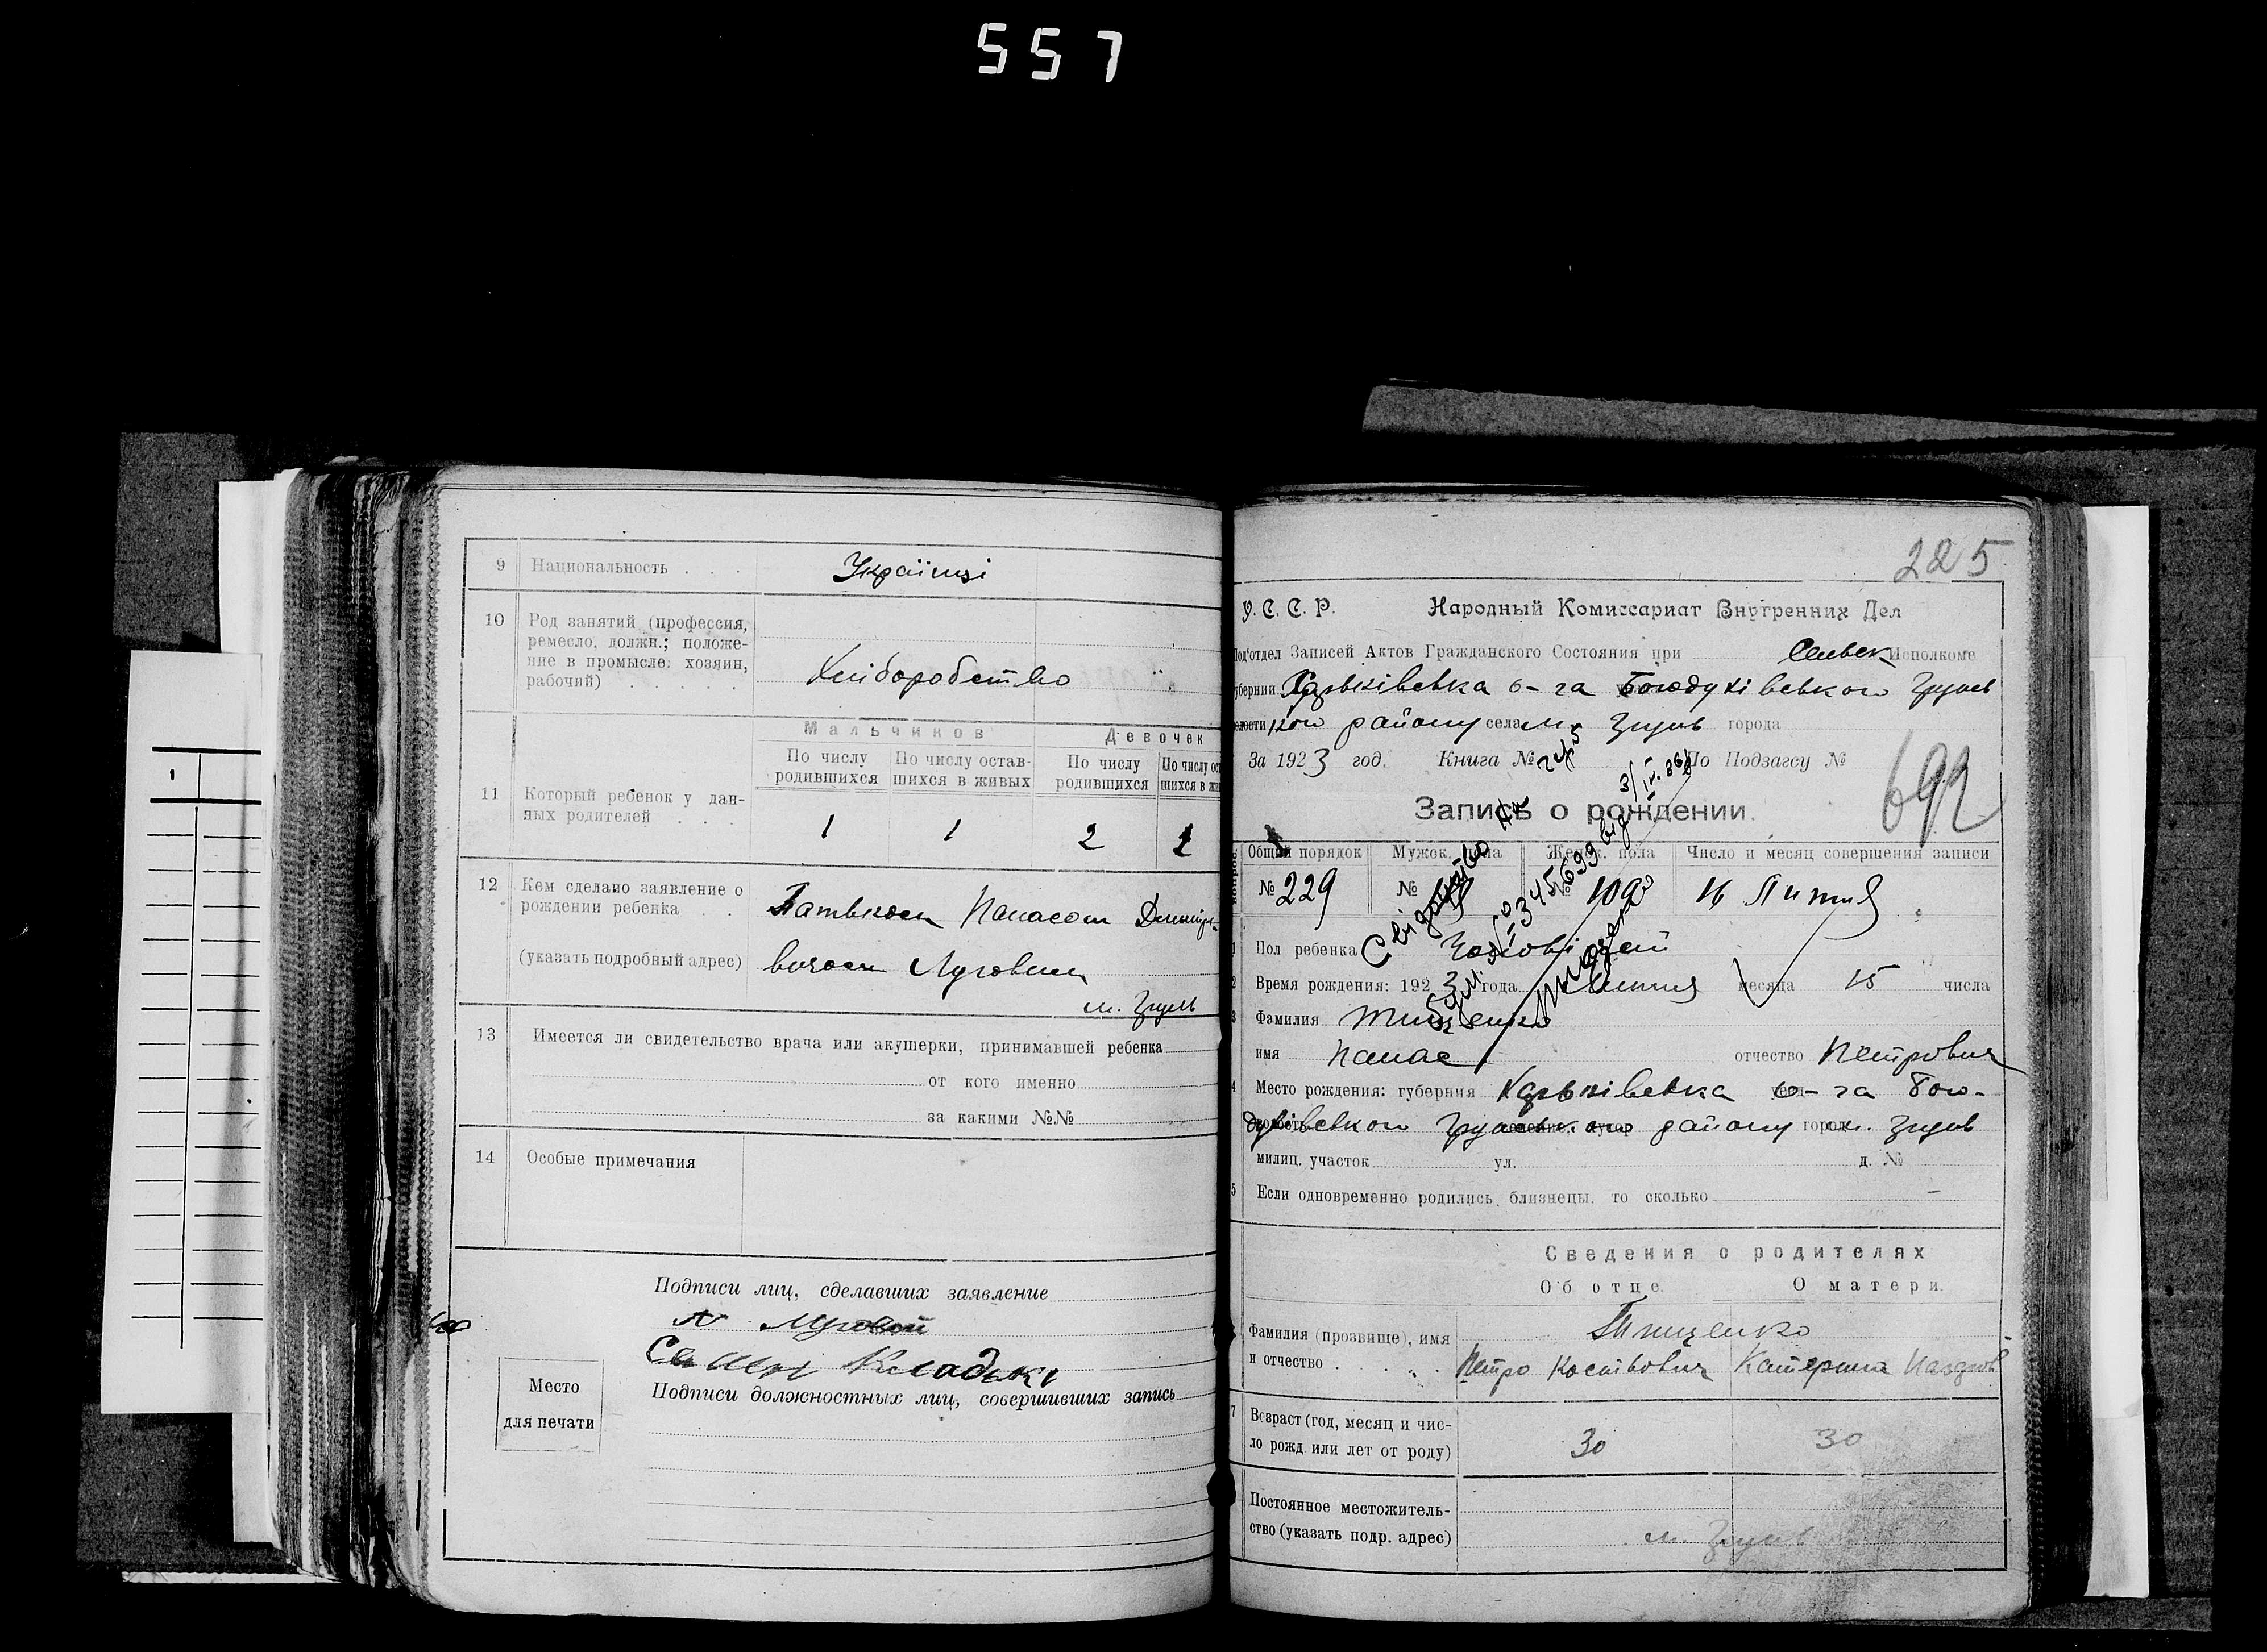 557
9 Национальность . . . Українці
10 Род занятий (профессия,
ремесло, должн.; положе-
ние в промысле: хозяин,
рабочий) . . . . . Хліборобство
Мальчиков Девочек
По числу родившихся По числу остав-шихся в живых По числу родившихся По числу ос
11 Который ребенок у дан-
ных родителей . . . 1 1 2 1
12 Кем сделано заявление о
рождении ребенка . . Батьком Панасом
(указать подробный адрес) Луговим
м.
13 Имеется ли свидетельство врача или акушерки, принимавшей ребенка
от кого именно
за какими №№
14 Особые примечания
Подписи лиц, сделавших заявление
Луговой
Семен
Подписи должностных лиц, совершивших запись
Место
для печати
225
У. С. С. Р. Народный Комиссариат Внутренних Дел
Под'отдел Записей Актов Гражданского Состояния при Исполкоме
губернии Харьківська о-га Богодухівського
района села м. города
За 1923 год. Книга № По Подзагсу №
692
Запись о рождении.
Общий порядок Мужск. пола Женск. пола Число и месяц совершения записи
№ 229 № 109 16 Липня
Пол ребенка Чоловічий
Время рождения: 1923 года Липня месяца 15 числа
Фамилия Тищенко
имя Панас отчество Петрович
Место рождения: губерния Харьківська о-га Бого-
духівського району город м.
милиц. участок ул. д. №
5 Если одновременно родились близнецы, то сколько –
Сведения о родителях
Об отце. О матери.
Тищенко
Фамилия (прозвище), имя
и отчество . . . Петро Костьович Катерина
7 Возраст (год, месяц и чис-
ло рожд или лет от роду) 30 30
Постоянное местожитель-
ство (указать подр. адрес) м.
1